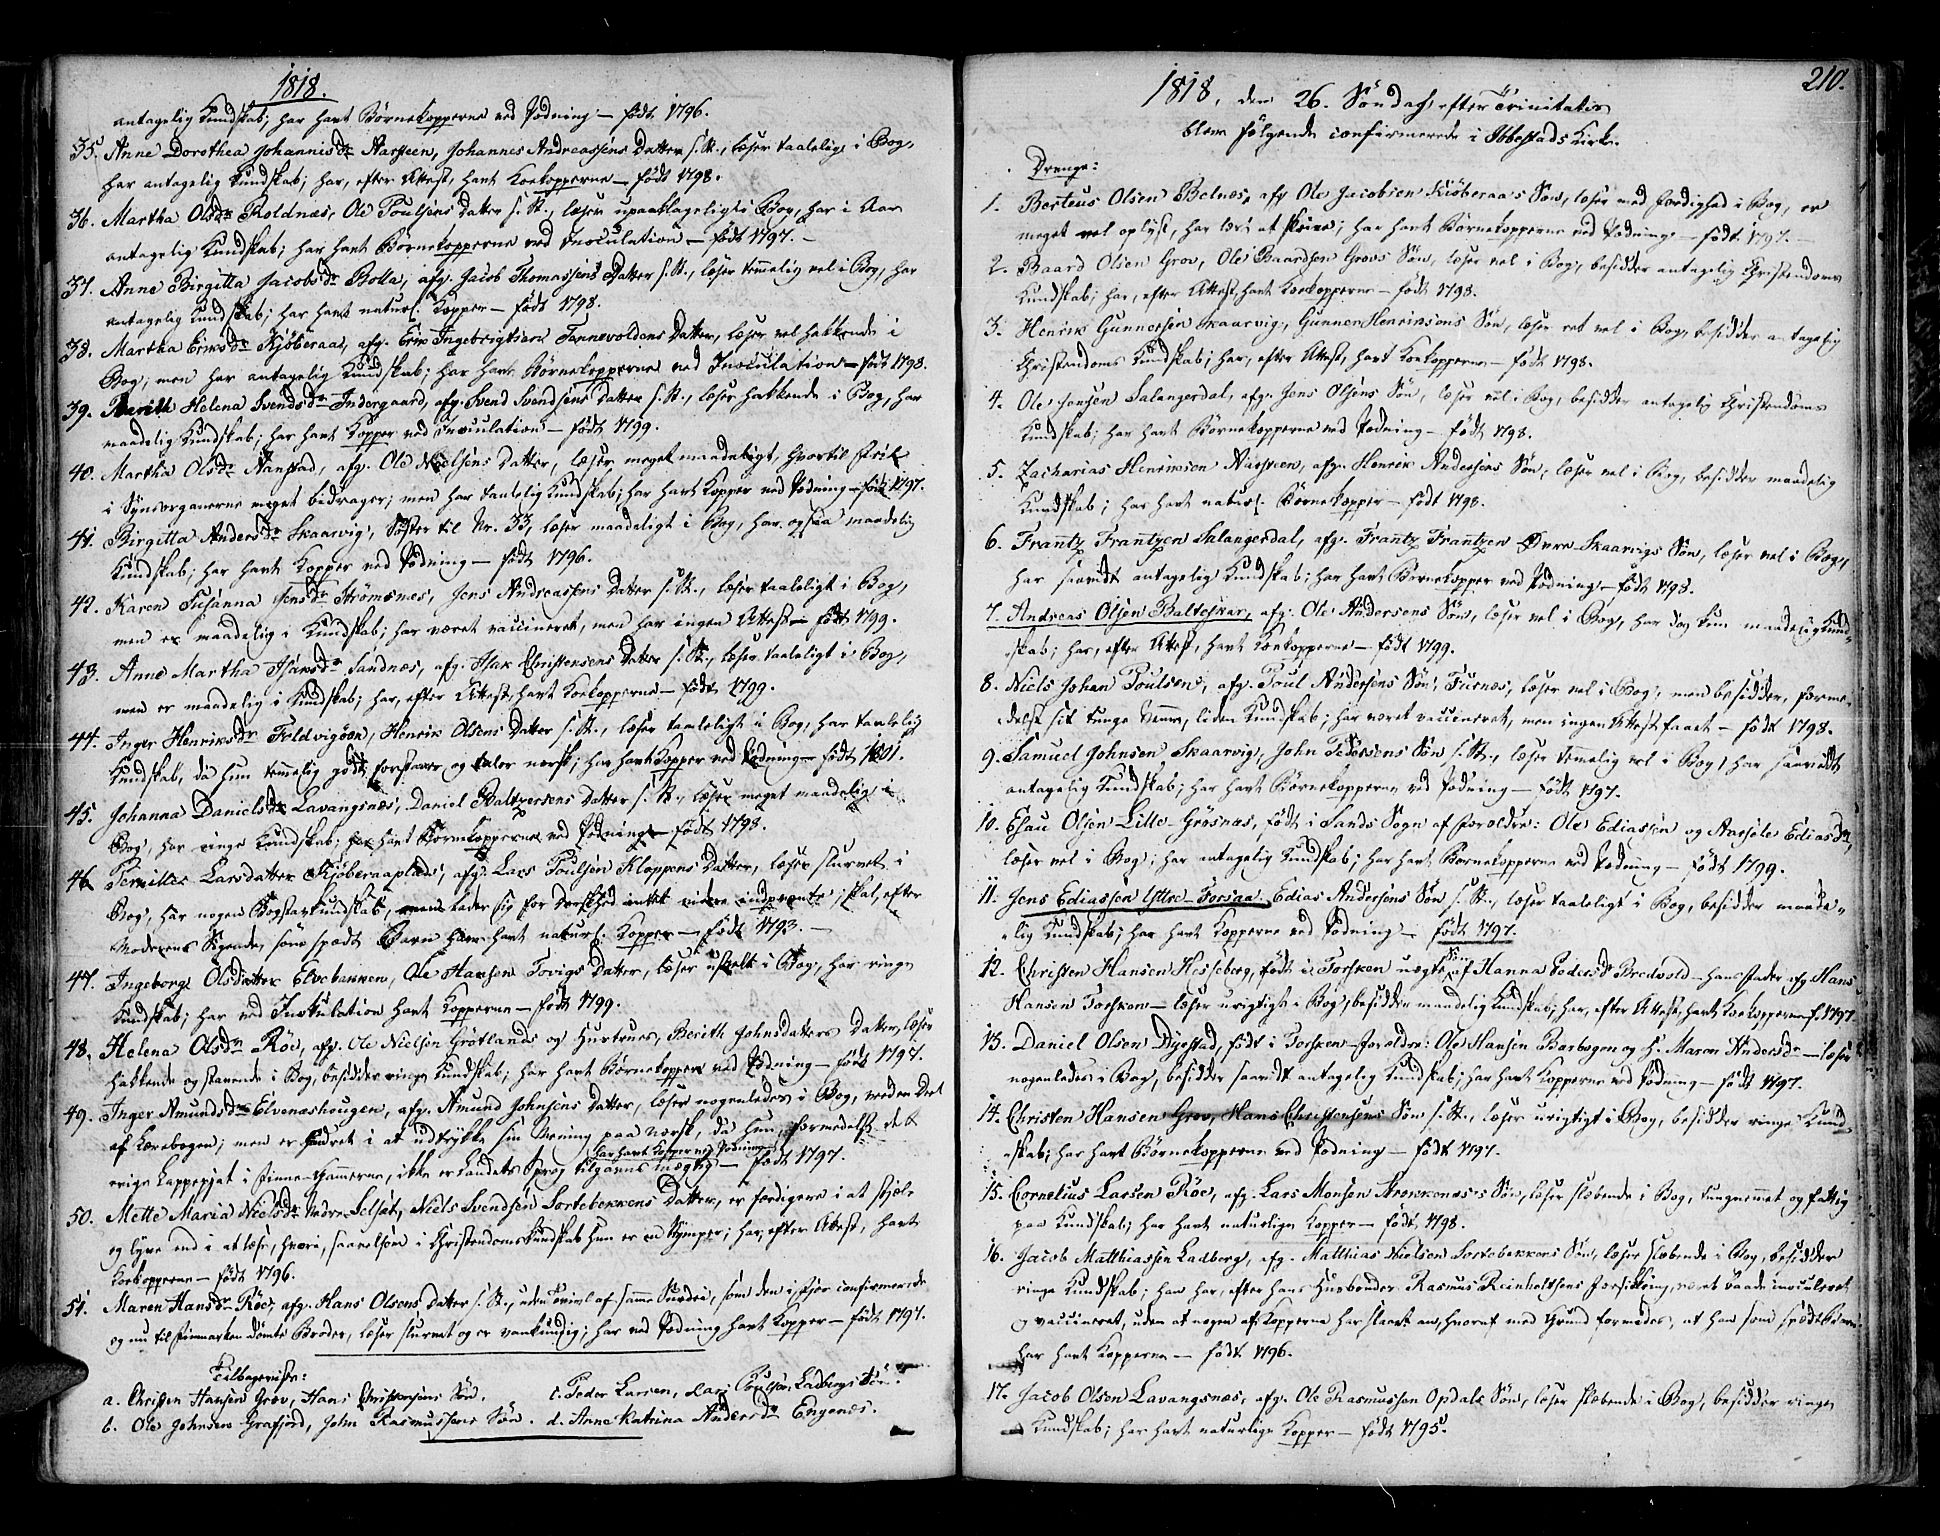 1818.
antagelig Kundskab; har havt Børnekopperne ved Podning – født 1796.
35. Anne Dorothea Johannisdr Aarsteen, Johannes Andreassens Datter s. St., læser taalelig i Bog,
har antagelig Kundskab; har, efter Attest, havt Koekopperne – født 1798.
36. Martha Olsdr Roldnæs, Ole Poulsens Datter s. St., læser upaaklageligt i Bog, har i Aar
antagelig Kundskab; har havt Børnekopperne ved Inoculation – født 1797. –
37. Anne Birgitta Jacobsdr Bolla, afg. Jacob Thomassens Datter s. St., læser temmelig vel i Bog, har
antagelig Kundskab; har havt naturl. Kopper – født 1798.
38. Martha Ericsdr Kjøberaas, afg. Eric Ingebrigtsens Tennevoldens Datter, læser vel hakkende i
Bog, men har antagelig Kundskab; har havt Børnekopperne ved Inoculation – født 1798.
39. Berith Helena Svendsdr Indergaard, afg. Svend Svendsens Datter s. St., læser hakkende i Bog, har
maadelig Kundskab; har havt Kopper ved Inoculation – født 1799.
40. Martha Olsdr Aanstad, afg. Ole Nielsens Datter, læser meget maadeligt, hvortil Feil
i Synsorganerne meget bidrager; men har taalelig Kundskab; har havt Kopper ved Podning – født 1797.
41. Birgitta Andersdr Skaarvig, Søster til Nr. 33, læser maadeligt i Bog, har ogsaa maadelig
Kundskab; har havt Kopper ved Podning – født 1796.
42. Karen Susanna Jensdr Strømsnes, Jens Andreassens Datter s. St., læser taaleligt i Bog,
men er maadelig i Kundskab; har været vaccineret, men har ingen Attest – født 1799.
43. Anne Martha Isaksdr Sandnæs, afg. Isak Christensens Datter s. St., læser taaleligt i Bog,
men er maadelig i Kundskab; har, efter Attest, havt Koekopperne – født 1799.
44. Inger Henriksdr Foldvigøen, Henrik Olsens Datter s. St., læser taaleligt i Bog, har taalelig
Kundskab, da hun temmelig godt forstaaer og taler norsk; har havt Kopper ved Podning – født 1801.
45. Johanna Danielsdr Lavangsnæs, Daniel Baltzersens Datter s. St., læser meget maadelig i
Bog, har ringe Kundskab; har havt Børnekopperne ved Podning – født 1798.
46. Pernille Larsdatter Kjøberaaplads, afg. Lars Poulsen Kloppens Datter, læser slurvet i
Bog, har nogen Bogstavkundskab, men lader sig for Dorskhed intet videre indprænte, skal, efter
Moderens Sigende, som spædt Barn have havt naturl. Kopper – født 1793. –
47. Ingeborg Olsdatter Elvebakken, Ole Hansen Tovigs Datter, læser uselt i Bog, har ringe
Kundskab; har ved Inokulation havt Kopperne – født 1799.
48. Helena Olsdr Røe, afg. Ole Nielsen Grøtlands og Hustrues, Berith Johnsdatters Datter, læser
hakkende og stavende i Bog, besidder ringe Kundskab; har havt Børnekopper ved Podning – født 1797.
49. Inger Amundsdr Elvenæshougen, afg. Amund Johnsens Datter, læser nogenledes i Bog, veed en Deel
af Lærebogen; men er hindret i at udtrykke sin Mening paa norsk, da hun, formedelst det
har havt Kopper ved Podning
evige Lappepjat i Finne-Gammerne, ikke er Landets Sprog tilgavns mægtig – født 1797.
50. Mette Maria Nielsdr Nedre Seljet, Niels Svendsen Sortebekkens Datter, er færdigere i at stjæle
og lyve end i at læse, hvori, saavelsom i Christendomskundskab hun er en Stymper; har, efter Attest, havt
Koekopperne – født 1796.
51. Maren Hansdr Røe, afg. Hans Olsens Datter s. St., uden Tvivl af samme Surdei, som den i Fjor confirmerede
og nu til Finmarken dømte Broder, læser slurvet og er vankundig; har ved Podning havt Kopper – født 1797.
Tilbageviste:
a. Christen Hansen Grov, Hans Christensens Søn.
c. Peder Larsen, Lars Poulsen Ladbergs Søn.
b. Ole Johnsen Grasfjord, John Rasmussens Søn.
d. Anne Katrina Andersdr Engenæs.
210.
1818, den 26. Søndag efter Trinitatis
bleve følgende confirmerede i Ibbestads Kirke.
Drenge:
1. Berteus Olsen Belnæs, afg. Ole Jacobsen Kiøberaa's Søn, læser med Færdighed i Bog, er
meget vel oplyst, har lært at skrive; har havt Børnekopperne ved Podning – født 1797. –
2. Baard Olsen Grov, Ole Baardsen Grovs Søn, læser vel i Bog, besidder antagelig Christendoms
Kundskab; har, efter Attest, havt Koekopperne – født 1798.
3. Henrik Gunnersen Skaarvig, Gunner Henriksens Søn, læser ret vel i Bog, besidder antagelig
Christendoms Kundskab; har, efter Attest, havt Koekopperne – født 1798.
4. Ole Jensen Salangerdal, afg. Jens Olsens Søn, læser vel i Bog, besidder antagelig Christendoms
Kundskab; har havt Børnekopperne ved Podning – født 1798.
5. Zacharias Henriksen Aarsteen, afg. Henrik Andersens Søn, læser vel i Bog, besidder maadelig
Kundskab; har havt naturl. Børnekopper – født 1798.
6. Frantz Frantzen Salangerdal, afg. Frantz Frantzen Øvre Skaarvigs Søn, læser vel i Bog,
har saavidt antagelig Kundskab; har havt Børnekopper ved Podning – født 1798.
7. Andreas Olsen Balteskar, afg. Ole Andersens Søn, læser vel i Bog, har dog kun maadelig Kund-
skab; har, efter Attest, havt Koekopperne – født 1799.
8. Niels Johan Poulsen, afg. Poul Andersens Søn, Furnæs, læser vel i Bog, men besidder, forme-
delst sit tunge Nemme, liden Kundskab; har været vaccineret, men ingen Attest faaet – født 1798.
9. Samuel Johnsen Skaarvig, John Pedersens Søn s. St., læser temmelig vel i Bog, har saavidt
antagelig Kundskab; har havt Børnekopperne ved Podning – født 1797.
10. Esau Olsen Lille Grøsnæs, født i Sands Sogn af Forældre: Ole Ediassen og Aasele Ediasdr,
læser vel i Bog; har antagelig Kundskab; har havt Børnekopperne ved Podning – født 1799.
11. Jens Ediassen Yttre-Forsaa, Edias Andersens Søn s. St., læser taaleligt i Bog, besidder maade-
lig Kundskab; har havt Kopperne ved Podning – født 1797.
12. Christen Hansen Hesseberg, født i Torsken uægte Søn af Hanna Pedersdr Bredvold – hans Fader afg. Hans
Hansen Torsken – læser urigtigt i Bog, besidder maadelig Kundskab; har, efter Attest, havt Koekopperne f. 1797.
13. Daniel Olsen Dyrstad, født i Torsken – Forældre: Ole Hansen Barbogen og H. Maren Andersdr – læser
nogenledes i Bog, besidder saavidt antagelig Kundskab; har havt Kopperne ved Podning – født 1797.
14. Christen Hansen Grov, Hans Christensens Søn s. St., læser urigtigt i Bog, besidder ringe Kund-
skab; har havt Børnekopperne ved Podning – født 1797.
15. Cornelius Larsen Røe, afg. Lars Monsen Strokkenæs's Søn, læser slæbende i Bog, tungnemmet og fattig
paa Kundskab; har havt naturlige Kopper – født 1798.
16. Jacob Matthiassen Ladberg, afg. Matthias Nielsen Sortebekkens Søn, læser slæbende i Bog, besidder
ringe Kundskab; han har, efter hans Huusbonde Rasmus Reinholtsens Forsikring, været baade inoculeret
og vaccineret, uden at nogen af Kopperne har slaaet an, hvoraf med Grund formodes, at han som spædt Barn
har havt Kopperne – født 1796.
17. Jacob Olsen Lavangsnæs, afg. Ole Rasmussen Opdals Søn, læser slæbende i Bog, besidder ringe
Kundskab; har havt naturlige Kopper – født 1795.